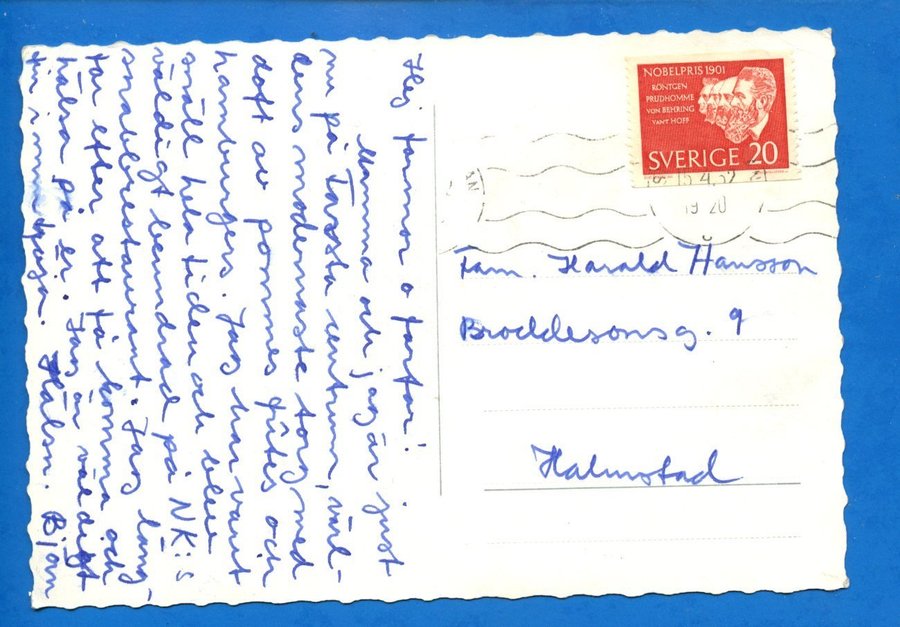 Hej farmor o farfar!
Mamma och jag är just
nu på Farsta centrum, värl-
dens modernaste torg med
doft av pommes frites och
hamburgers. Jag har varit
snäll hela tiden och blev
väldigt beundrad på NK:s
snabbrestaurant. Jag läng-
tar efter att få komma och
hälsa på er. Jag är väldigt
fin i min tröja. Hälsn. Björn
NOBELPRIS 1901
RÖNTGEN
PRUDHOMME
VON BEHRING
VAN'T HOFF
SVERIGE 20
19 20
Fam. Harald Hansson
Broddesonsg. 9
Halmstad